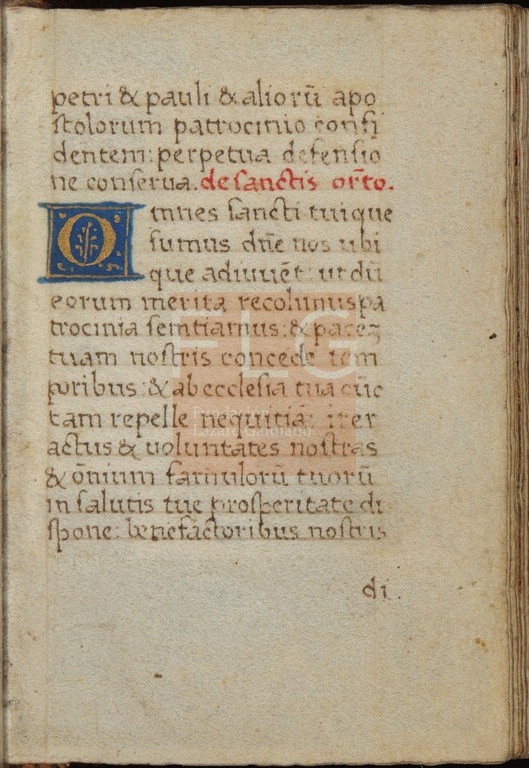 petri & pauli & aliorū apo
stolorum patrocinio confi
dentem: perpetua defensio
ne conserua. de sanctis orto.
Omnes sancti tui que
sumus dn̄e nos ubi
que adiuuēt: ut dū
eorum merita recolimus pa
trocinia sentiamus: & pacez
tuam nostris concede tem
poribus: & ab ecclesia tua cūc
tam repelle nequitiā: iter
actus & uoluntates nostras
& ōnium famulorū tuorū
in salutis tue prosperitate di
spone: benefactoribus nostris
di.
FLG
Fundación
Lázaro Galdiano